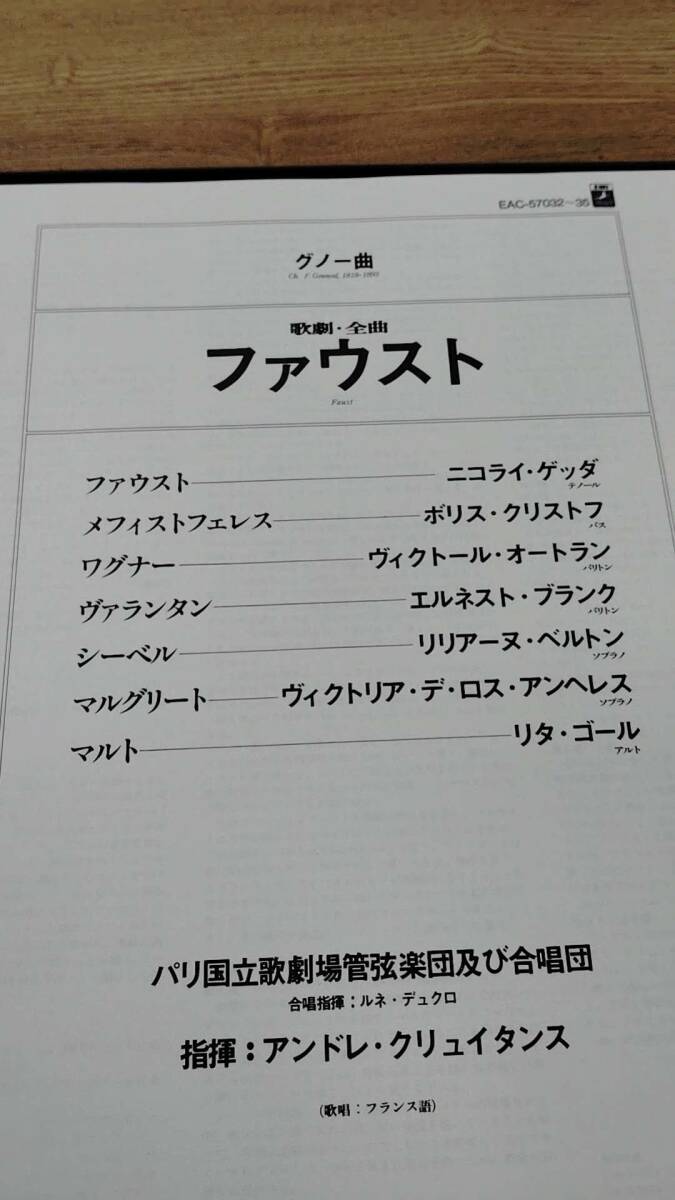 EAC-57032~35
グノー曲
Ch. F. Gounod, 1818-1893
歌劇・全曲
ファウスト
Faust
ファウスト ニコライ・ゲッダ
テノール
メフィストフェレス ボリス・クリストフ
バス
ワグナー ヴィクトール・オートラン
バリトン
ヴァランタン エルネスト・ブランク
バリトン
シーベル リリアーヌ・ベルトン
ソプラノ
マルグリート ヴィクトリア・デ・ロス・アンヘレス
ソプラノ
マルト リタ・ゴール
アルト
パリ国立歌劇場管弦楽団及び合唱団
合唱指揮：ルネ・デュクロ
指揮：アンドレ・クリュイタンス
(歌唱：フランス語)